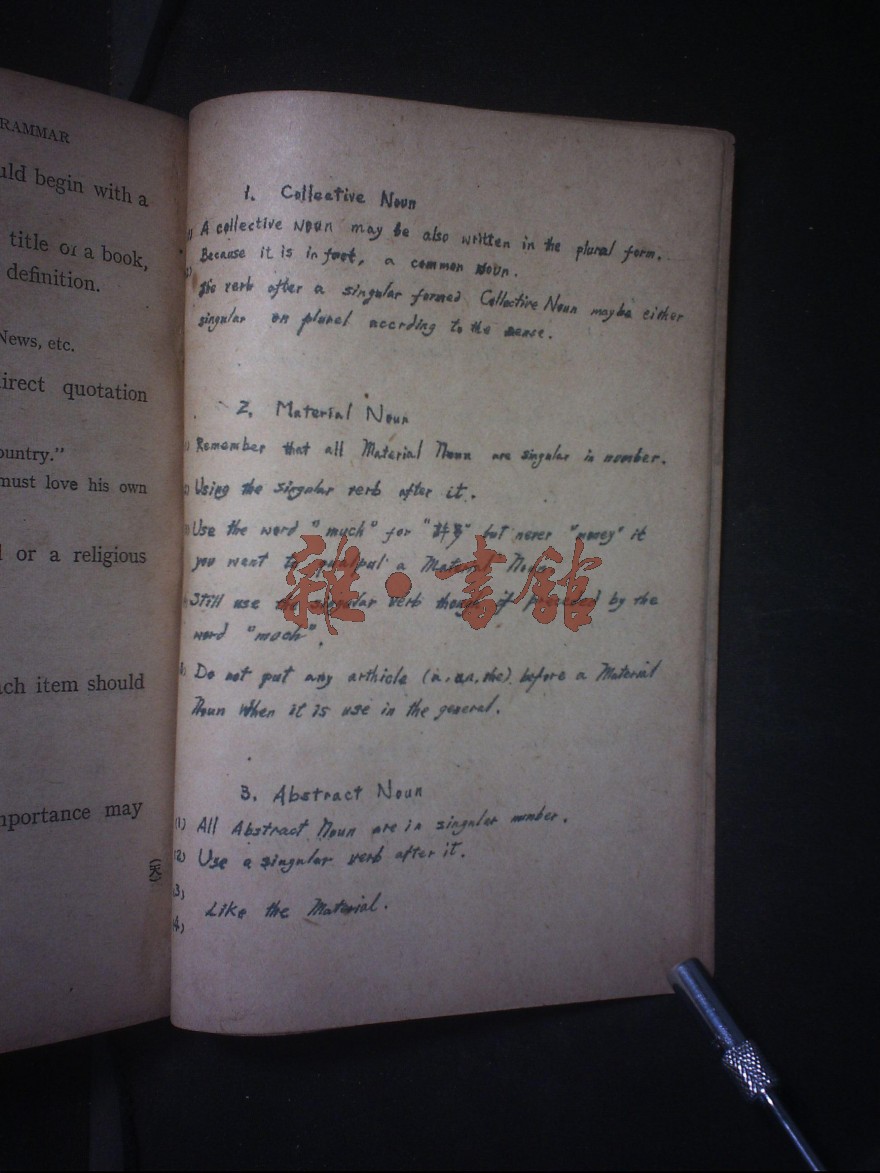 RAMMAR
uld begin with a
title or a book,
definition.
News, etc.
irect quotation
ountry."
must love his own
or a religious
ach item should
mportance may
(天)
1. Collective Noun
(1) A collective Noun may be also written in the plural form.
Because it is in fact, a common Noun.
The verb after a singular formed Collective Noun maybe either
singular on plural accrding to the sense.
2. Material Noun
Remember that all Material Noun are singular in number.
Using the singular verb after it.
Use the word "much" for "許多" but never "money" it
you want to a Material Noun
Still use the singular verb though if preceded by the
word "much".
Do not put any arthicle (a, an, the) before a Material
Noun When it is use in the general.
3. Abstract Noun
(1) All Abstract Noun are in singular number.
(2) Use a singular verb after it.
(3)
Like the Material.
(4)
雜•書館